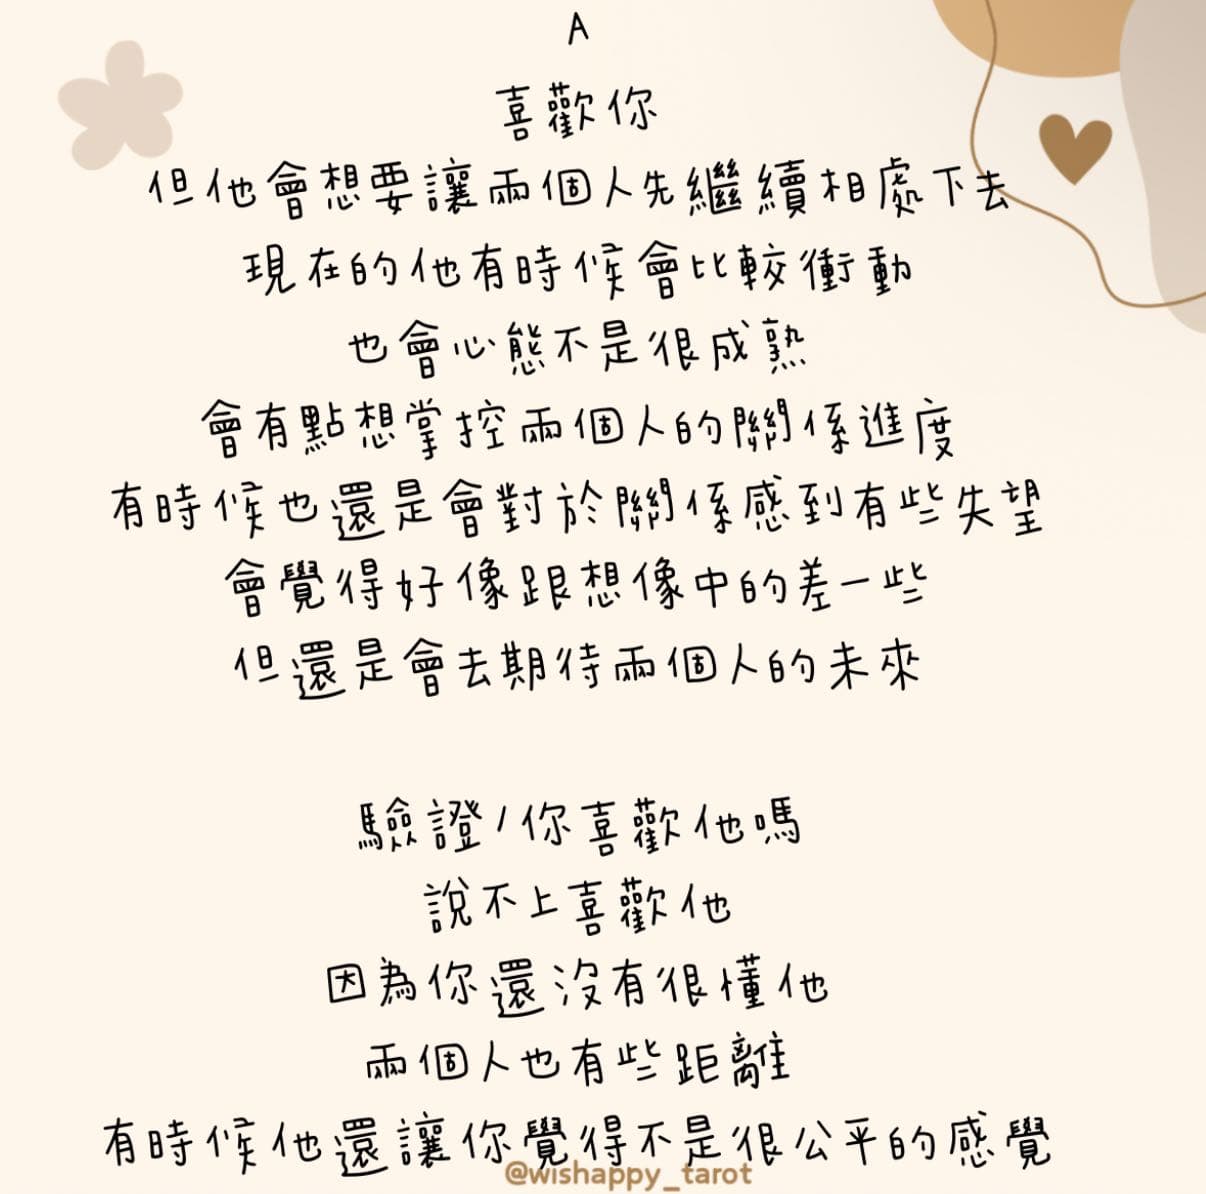 A
喜歡你
但他會想要讓兩個人先繼續相處下去
現在的他有時候會比較衝動
也會心態不是很成熟
會有點想掌控兩個人的關係進度
有時候也還是會對於關係感到有些失望
會覺得好像跟想像中的差一些
但還是會去期待兩個人的未來
驗證/你喜歡他嗎
說不上喜歡他
因為你還沒有很懂他
兩個人也有些距離
有時候他還讓你覺得不是很公平的感覺
@wishappy_tarot